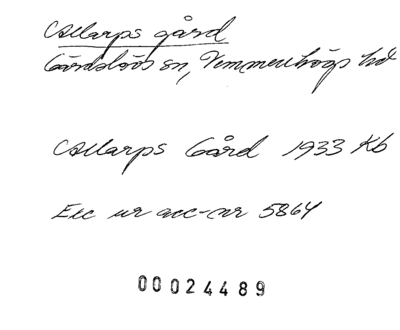 Allarps gård
Gärdslövs sn, Vemmenhögs hd
Allarps Gård 1933 Kb
Exc ur acc-nr 5864
00024489